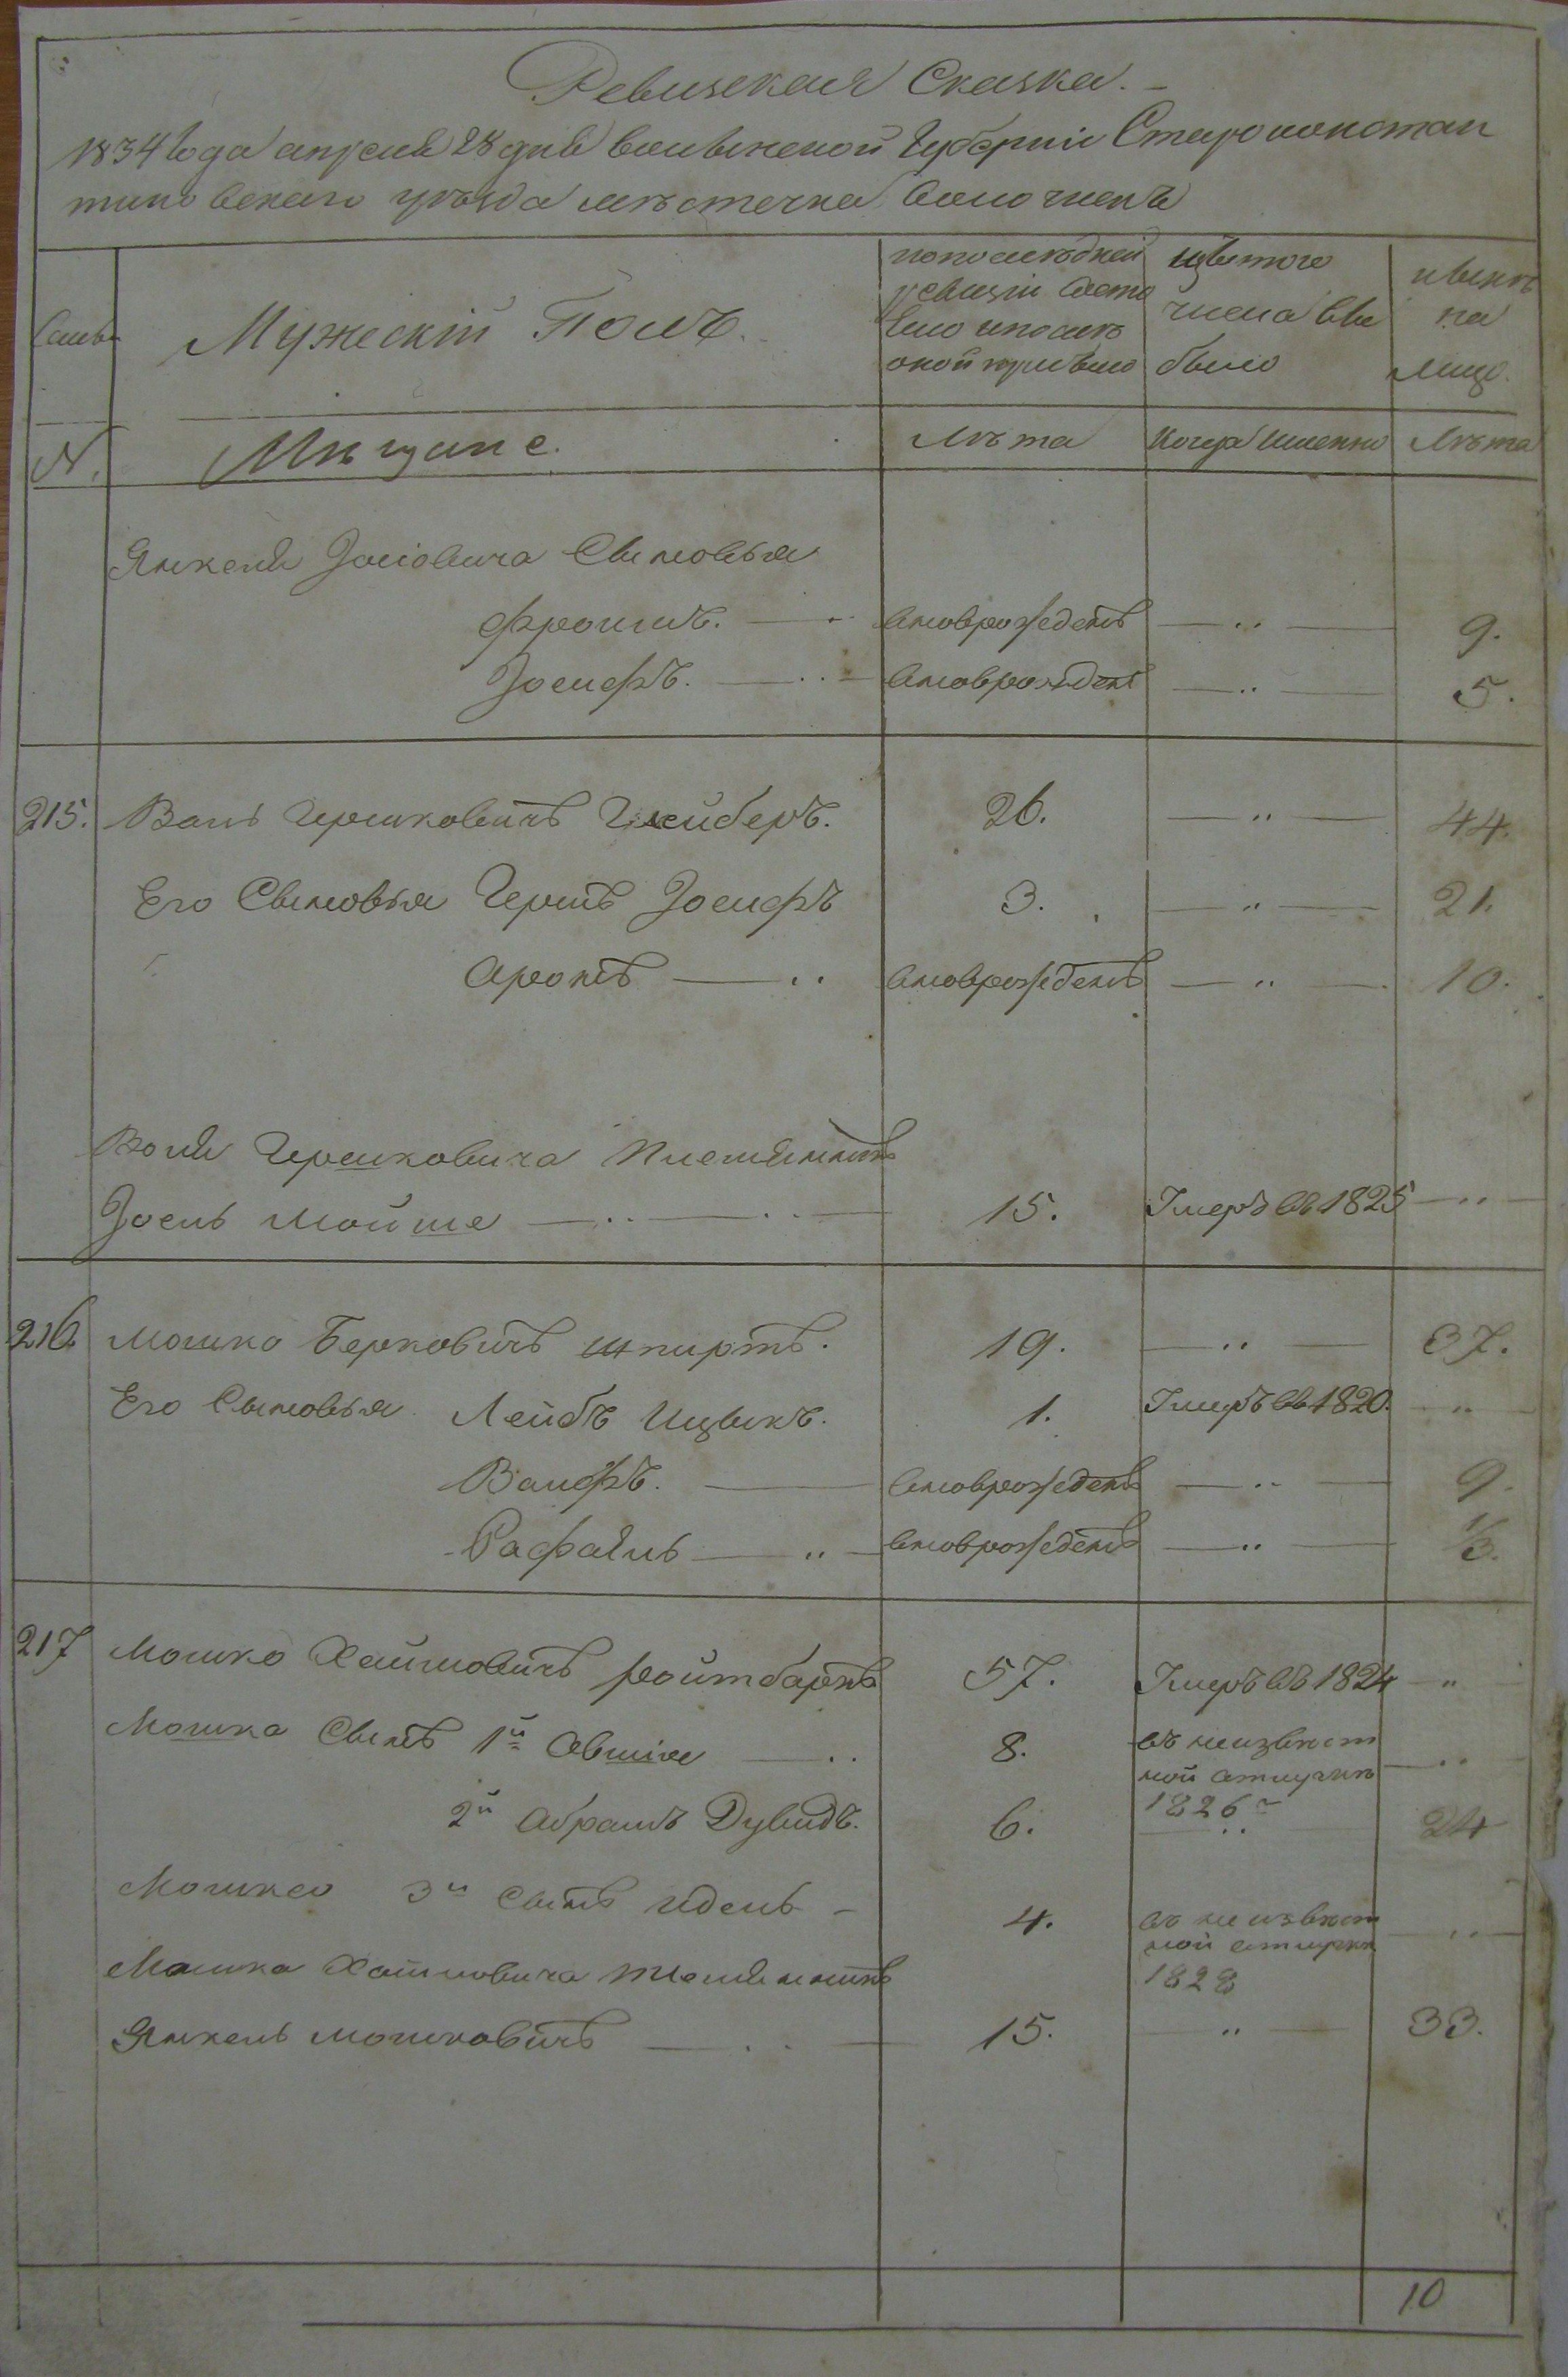 Ревизская Сказка.
1834 Года апреля 28 дня волынской Губернiи Староконстан
тиновского уѣзда мѣстечка Волочискъ
Семьи
Мужескiй Полъ.
попослѣдней ревизiи состояло ипослѣ оной прибыло
изътого числа выбыло
нынѣ на лицо.
N.
Мѣщане.
Лѣта
Когда имянно
Лѣта
Янкеля Iосiовича Сыновья
Фроимъ. вновьрожденъ 9.
Iосифъ. вновьрожденъ 5.
215. Волъ Гершковичъ Глейберъ. 26. 44.
Его Сыновья Гершъ Iосифъ 3. 21.
Аронъ вновьрожденъ 10.
Воля Гершковича племянникъ
Iосъ Мойше 15. Умеръ въ 1825
216. Мошко Берковичъ Шпиртъ. 19. 37.
Его Сыновья Лейбъ Ицыкъ. 1. Умеръ въ 1820.
Волфъ. вновьрожденъ 9.
Рафаиль вновьрожденъ 1/3.
217 Мошко Хаимовичъ Ройтбаркъ 57. Умеръ въ 1824
Мошка Сынъ 1й Овшiя 8. въ неизвѣст
ной отлучкѣ
1826
2й Абрамъ Дувидъ. 6. 24
Мошко 3й Сынъ Идель 4. въ неизвѣст
ной отлучкѣ
1828
Мошка Хаимовича племянникъ
Янкель Мошковичъ 15. 33.
10